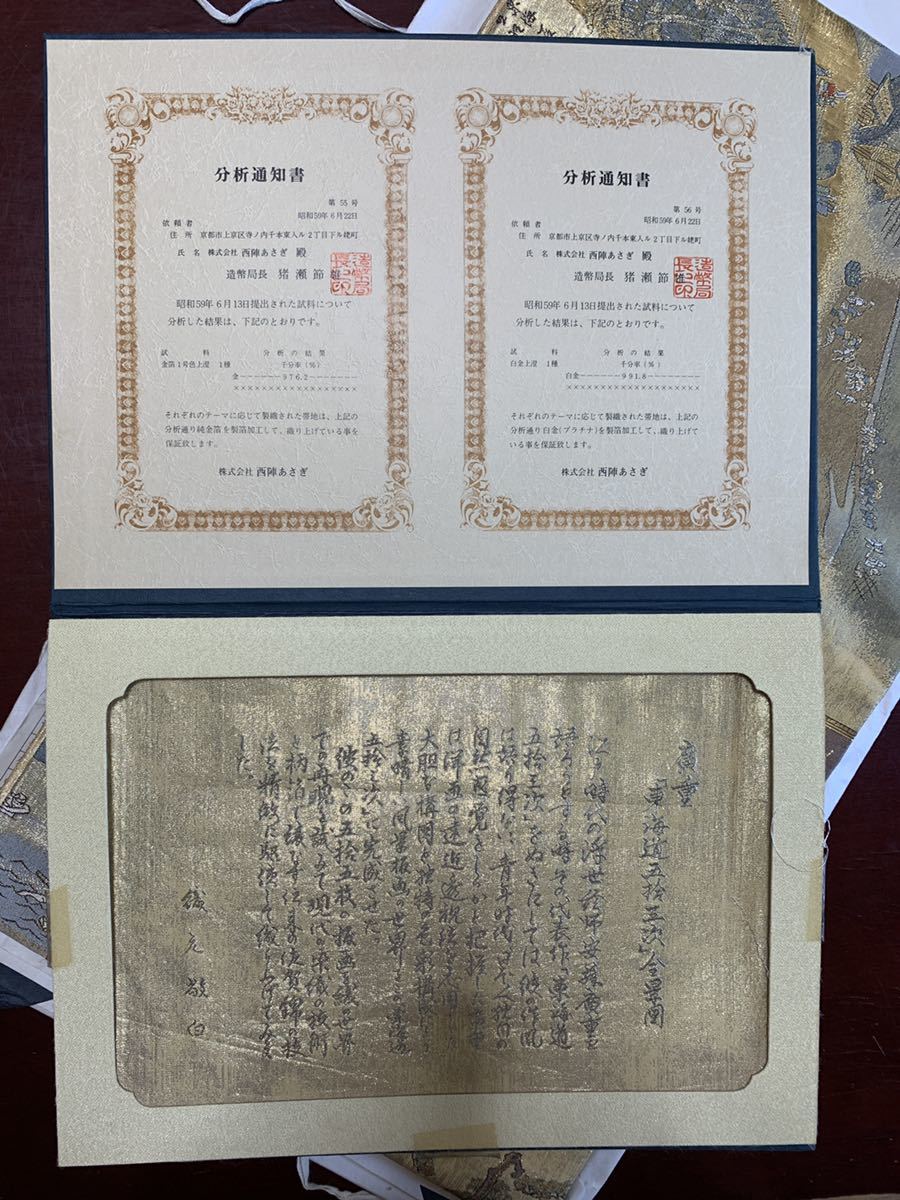 分析通知書
第 55 号
昭和59年 6月22日
依 頼 者
住 所 京都市上京区寺ノ内千本東入ル2丁目下ル姥町
氏 名 株式会社 西陣あさぎ 殿
造幣局長 猪瀬節雄
造幣局長之印
昭和59年 6月13日提出された試料について
分析した結果は、下記のとおりです。
試 料 分 析 の 結 果
金箔1号色上澄 1種 千分率(‰)
金――――976.2――――
××××××××××××××××××
それぞれのテーマに応じて製織された帯地は、上記の
分析通り純金箔を製箔加工して、織り上げている事を
保証致します。
株式会社 西陣あさぎ
分析通知書
第 56 号
昭和59年 6月22日
依 頼 者
住 所 京都市上京区寺ノ内千本東入ル2丁目下ル姥町
氏 名 株式会社 西陣あさぎ 殿
造幣局長 猪瀬節雄
造幣局長之印
昭和59年 6月13日提出された試料について
分析した結果は、下記のとおりです。
試 料 分 析 の 結 果
白金上澄 1種 千分率(‰)
白金――――991.8――――
×××××××××××××××××××
それぞれのテーマに応じて製織された帯地は、上記の
分析通り白金(プラチナ)を製箔加工して、織り上げて
いる事を保証致します。
株式会社 西陣あさぎ
廣重
「東海道五拾三次」全景図
時代の浮世絵師安藤廣重を
語ろうとする時その代表作「東海道
五拾三次」をぬきにしては彼の作風
は語り得ない。青年時代
は洋画の遠近透視
大胆な構図と独特の
の世界
五拾三次」に完成させた。
の五拾五枚の版画を織の世界
での再現を試みて現代の染織の技術
と
法を精緻に駆使して織り上げ
した。
織元敬白